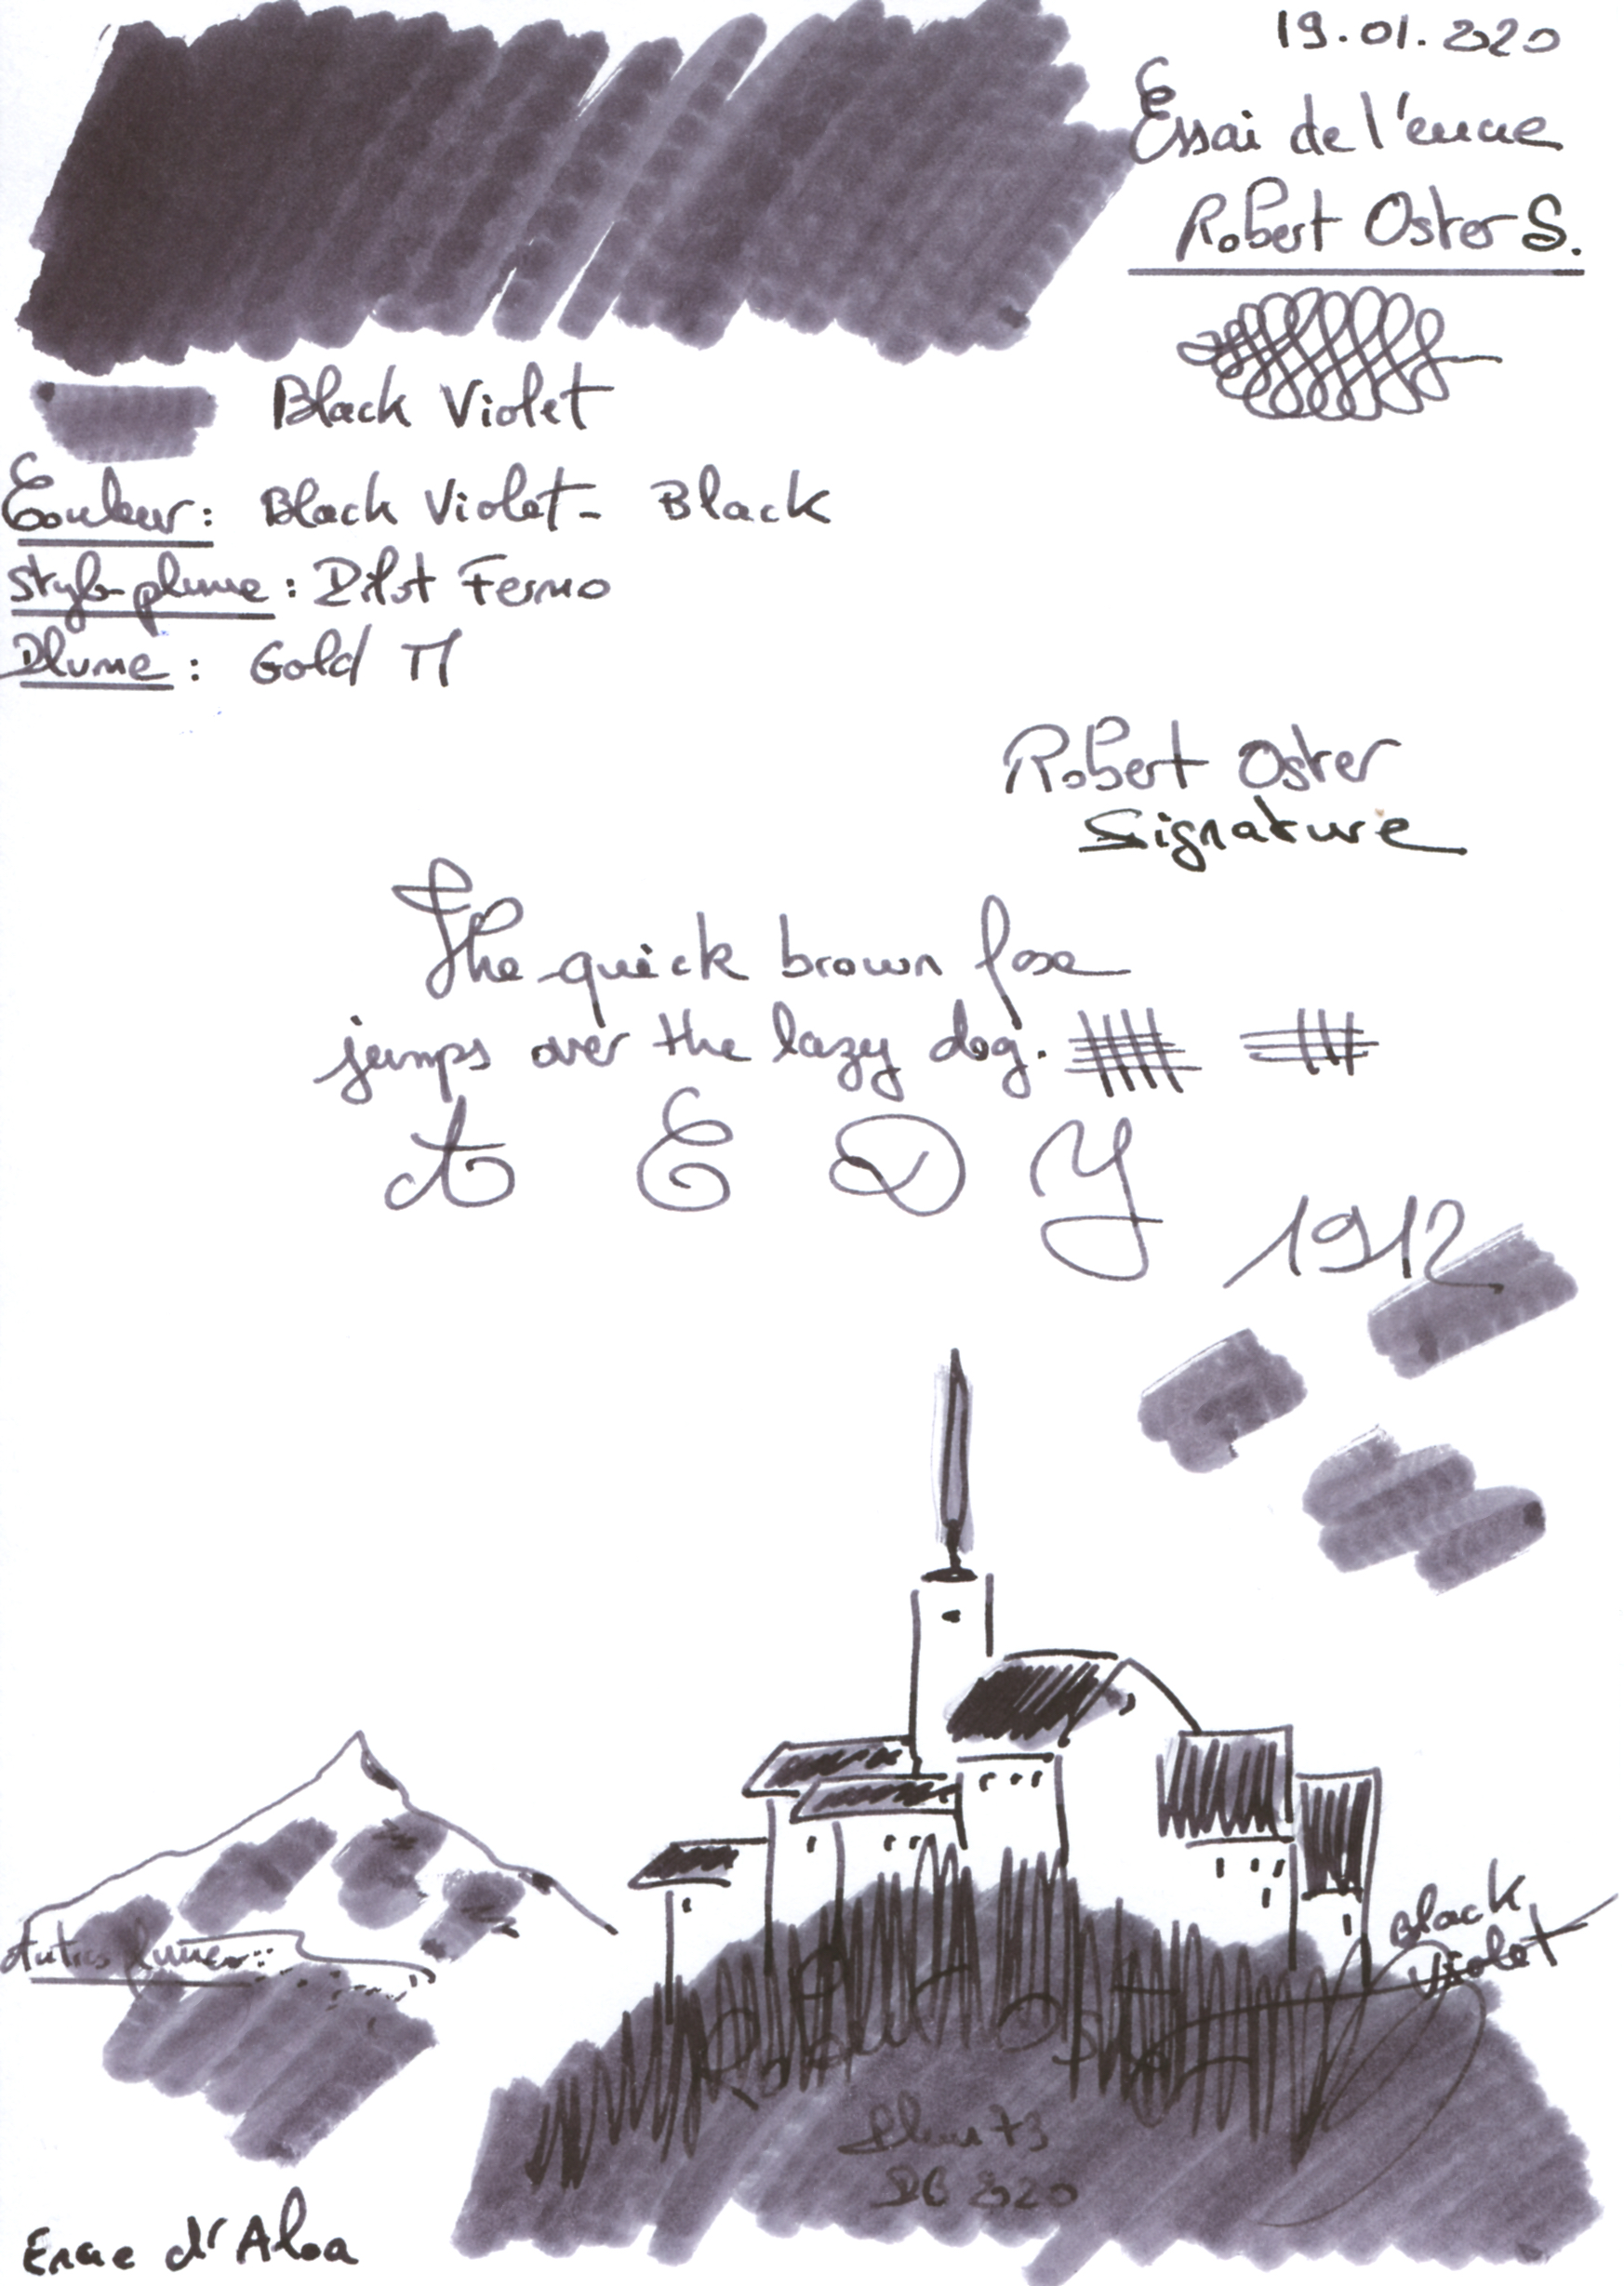 19.01.2020
Essai de l'encre
Robert Oster S.
Black Violet
Couleur: Black Violet - Black
Stylo-plume: Pilot Fermo
Plume: Gold M
Robert Oster
Signature
The quick brown fox
jumps over the lazy dog.
A E D Y
1912
Black
Violet
Autres plumes:
Robert Oster
Encre d'Alsa